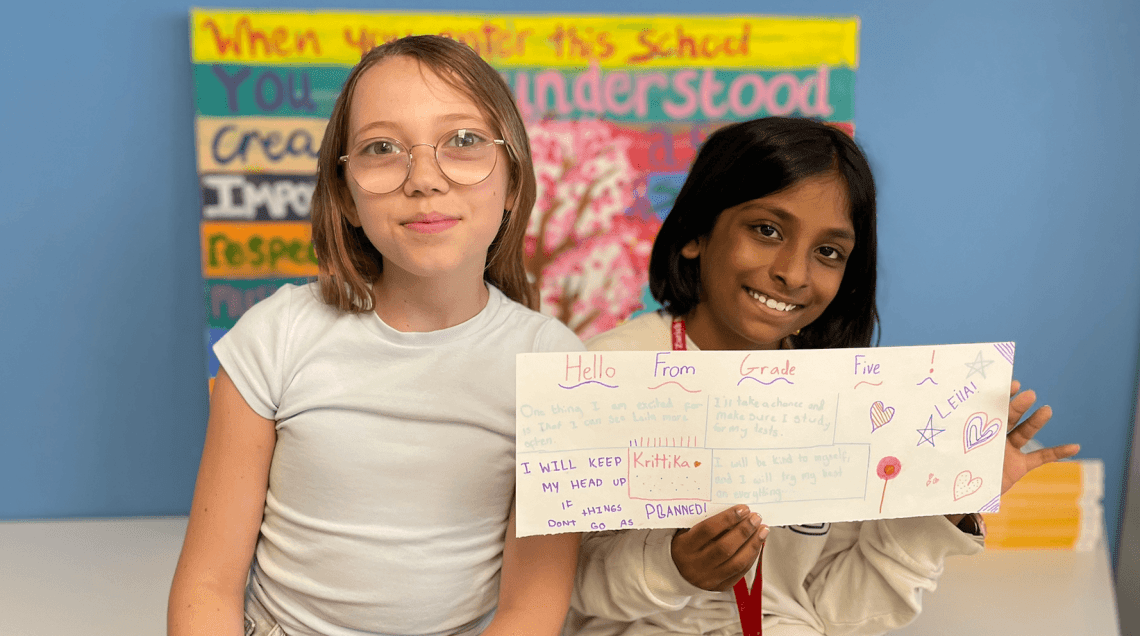 When you enter this School
You understood
Crea
IMPO
respe
Zurich
Hello From Grade Five !
One thing I am excited for
is that I can see Leila more
often.
I is take a chance and
make sure I study
for my tests.
LEIlA!
I WILL KEEP
MY HEAD UP
IF THINGS
DONT GO AS PLANNED!
Krittika
I will be kind to myself,
and I will try my best
on everything